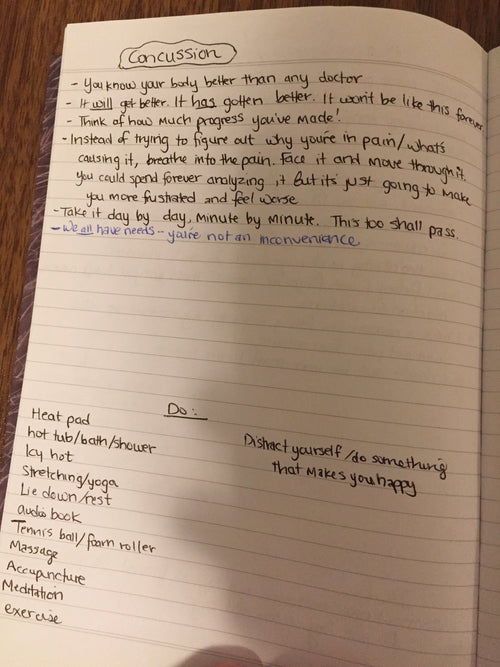 Concussion
- You know your body better than any doctor
- It will get better. It has gotten better. It won't be like this forever
- Think of how much progress you've made!
- Instead of trying to figure out why you're in pain/what's
causing it, breathe into the pain. Face it and move through it.
You could spend forever analyzing it but it's just going to make
you more frustrated and feel worse
- Take it day by day, minute by minute. This too shall pass.
- We all have needs -- you're not an inconvenience
Do:
Heat pad
hot tub/bath/shower
Icy hot
Stretching/yoga
Lie down/rest
audio book
Tennis ball/foam roller
Massage
Accupuncture
Meditation
exercise
Distract yourself/do something
that makes you happy